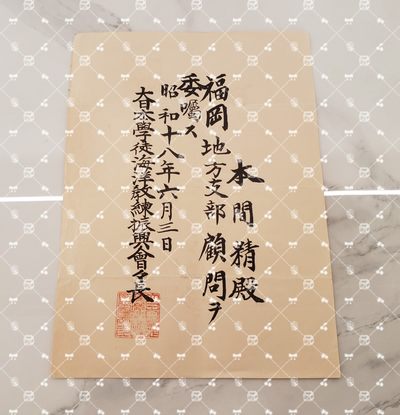 本間精殿
福岡地方支部顧問ヲ
委嘱ス
昭和十八年六月三日
大日本學徒海洋教練振興會々長